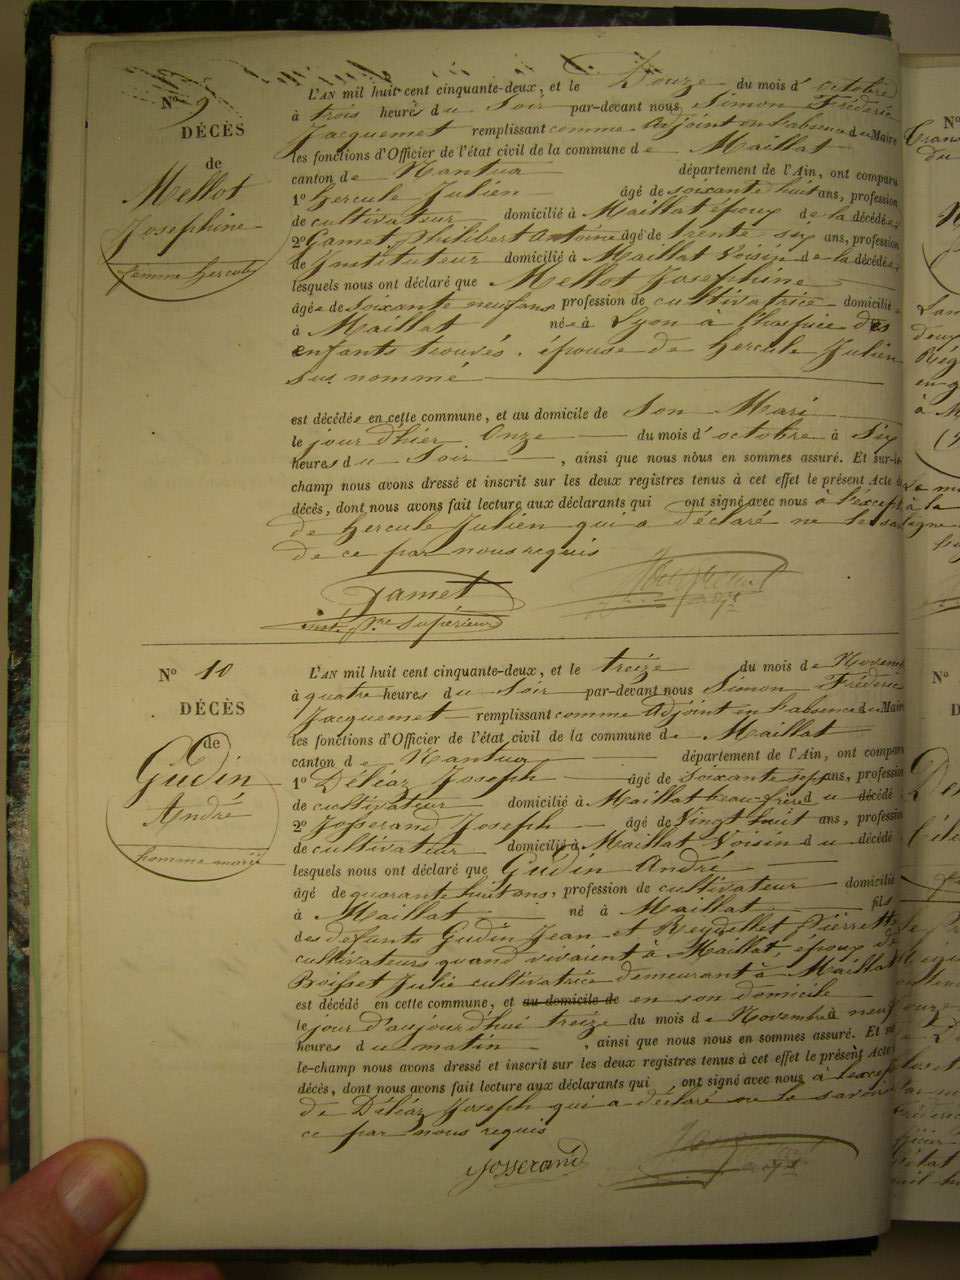 N° 9
DÉCÈS
de
Mellot
Josephine
femme hercule
L'AN mil huit cent cinquante-deux, et le Douze du mois d'octobre
à trois heures du Soir par-devant nous Simon Fréderic
Jacquemet remplissant comme adjoint en l'absence du Maire
les fonctions d'Officier de l'état civil de la commune de Maillat
canton de Nantua département de l'Ain, ont comparu
1° hercule Julien âgé de soixante huit ans, profession
de cultivateur domicilié à Maillat époux de la décédée
2° Gamet Philibert Antoine âgé de trente-six ans, profession
de Instituteur domicilié à Maillat Voisin de la décédée
lesquels nous ont déclaré que Mellot Josephine
âgée de Soixante neuf ans profession de cultivatrice domicilié
à Maillat née à Lyon à l'hospice des
enfants trouvés, épouse de hercule Julien
Sus nommé
est décédée en cette commune, et au domicile de Son Mari
le jour d'hier Onze du mois d'octobre à Six
heures du Soir, ainsi que nous nous en sommes assuré. Et sur-le-
champ nous avons dressé et inscrit sur les deux registres tenus à cet effet le présent Acte de
décès, dont nous avons fait lecture aux déclarants qui ont signé avec nous à l'except
de hercule Julien qui a déclaré ne le sa
de ce par nous requis
Gamet
inst. p.re Supérieur
Jacquemet
adjt
N° 10
DÉCÈS
de
Gudin
André
homme marié
L'AN mil huit cent cinquante-deux, et le treize du mois de Novemb
à quatre heures du Soir par-devant nous Simon Fréderic
Jacquemet remplissant comme adjoint en l'absence du Maire
les fonctions d'Officier de l'état civil de la commune de Maillat
canton de Nantua département de l'Ain, ont comparu
1° Déléaz Joseph âgé de Soixante sept ans, profession
de cultivateur domicilié à Maillat beau-frère du décédé
2° Josserand Joseph âgé de Vingt huit ans, profession
de cultivateur domicilié à Maillat Voisin du décédé
lesquels nous ont déclaré que Gudin André
âgé de quarante huit ans, profession de cultivateur domicilié
à Maillat né à Maillat fils
des défunts Gudin Jean et Reydellet Pierrette
cultivateurs quand vivaient à Maillat, époux de
Boisset Julie cultivatrice demeurant à Maillat
est décédé en cette commune, et au domicile de en son domicile
le jour d'aujourd'hui treize du mois de Novembre à neuf
heures du matin, ainsi que nous nous en sommes assuré. Et sur
le-champ nous avons dressé et inscrit sur les deux registres tenus à cet effet le présent Acte
décès, dont nous avons fait lecture aux déclarants qui ont signé avec nous à l'excep
de Déléaz Joseph qui a déclaré ne le savoir
ce par nous requis
Josserand
Jacquemet
adjt